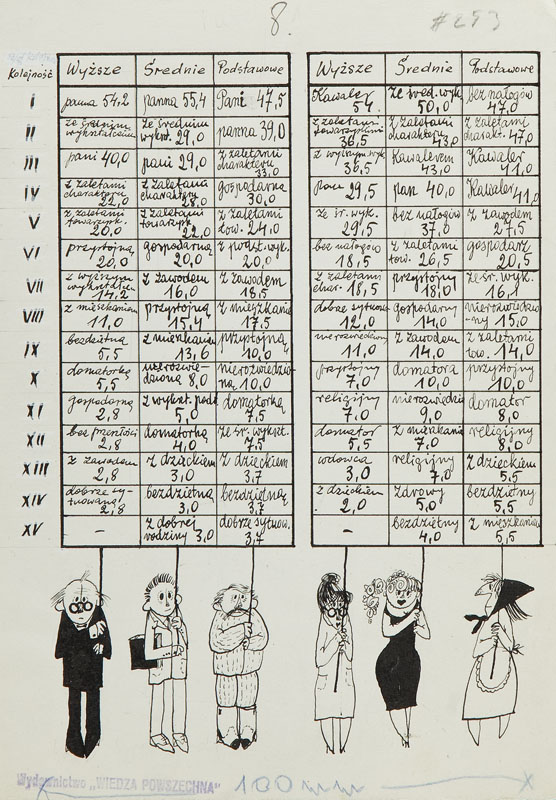 8.
#253
Kolejność
Wyższe Średnie Podstawowe
Wyższe Średnie Podstawowe
I panna 54,2 panna 55,4 Pani 47,5
Kawaler 54. ze śred. wyk. 50,0 bez nałogów 47,0
II ze średnim wykształceniem ze średnim wykszt. 29,0 panna 39,0
z zaletami towarzyskimi 36,5 z zaletami charakteru 43,0 z zaletami charakt. 47,0
III pani 40,0 pani 29,0 z zaletami charakteru 33,0
z wyższym wyk. 36,5 Kawalerem 43,0 Kawaler 41,0
IV z zaletami charakteru 22,0 z zaletami charakteru 28,0 gospodarną 30,0
29,5 pan 40,0 Kawaler 41,0
V z zaletami towarzysk. 20,0 z zaletami towarzysk. 22,0 z zaletami tow. 24,0
ze śr. wyk. 29,5 bez nałogów 37,0 z zawodem 27,5
VI przystojną 20,0 gospodarną 20,0 z podst. wyk. 20,0
bez nałogów 18,5 z zaletami tow. 26,5 gospodarz 20,5
VII z wyższym wykształcen. 14,2 z zawodem 16,0 z zawodem 18,5
z zaletami char. 18,5 przystojny 18,0 ze śr. wyk. 16,1
VIII z mieszkaniem 11,0 przystojną 15,4 z mieszkaniem 17,5
dobrze sytuow. 12,0 gospodarny 14,0 nierozwiedziony 15,0
IX bezdzietną 5,5 z mieszkaniem 13,6 przystojną 10,0
nierozwiedziony 11,0 z zawodem 14,0 z zaletami tow. 14,0
X domatorkę 5,5 nierozwiedzioną 8,0 nierozwiedzioną 10,0
przystojny 7,0 domatora 10,0 przystojny 10,0
XI gospodarną 2,8 z wykszt. podst. 5,0 domatorką 7,5
religijny 7,0 nierozwiedzion 9,0 domator 8,0
XII bez przeszłości 2,8 domatorką 4,0 ze śr. wykszt. 7,5
domator 5,5 z mieszkania 7,0 religijny 8,0
XIII z zawodem 2,8 z dzieckiem 3,0 z dzieckiem 3,7
wdowca 3,0 religijny 7,0 z dzieckiem 5,5
XIV dobrze sytuowaną 2,8 bezdzietną 3,0 bezdzietną 3,7
z dzieckiem 2,0 zdrowy 5,0 bezdzietny 5,5
XV – z dobrej rodziny 3,0 dobrze sytuow. 3,7
– bezdzietny 4,0 z mieszkaniem 5,5
Wydawnictwo „WIEDZA POWSZECHNA" 100 mm